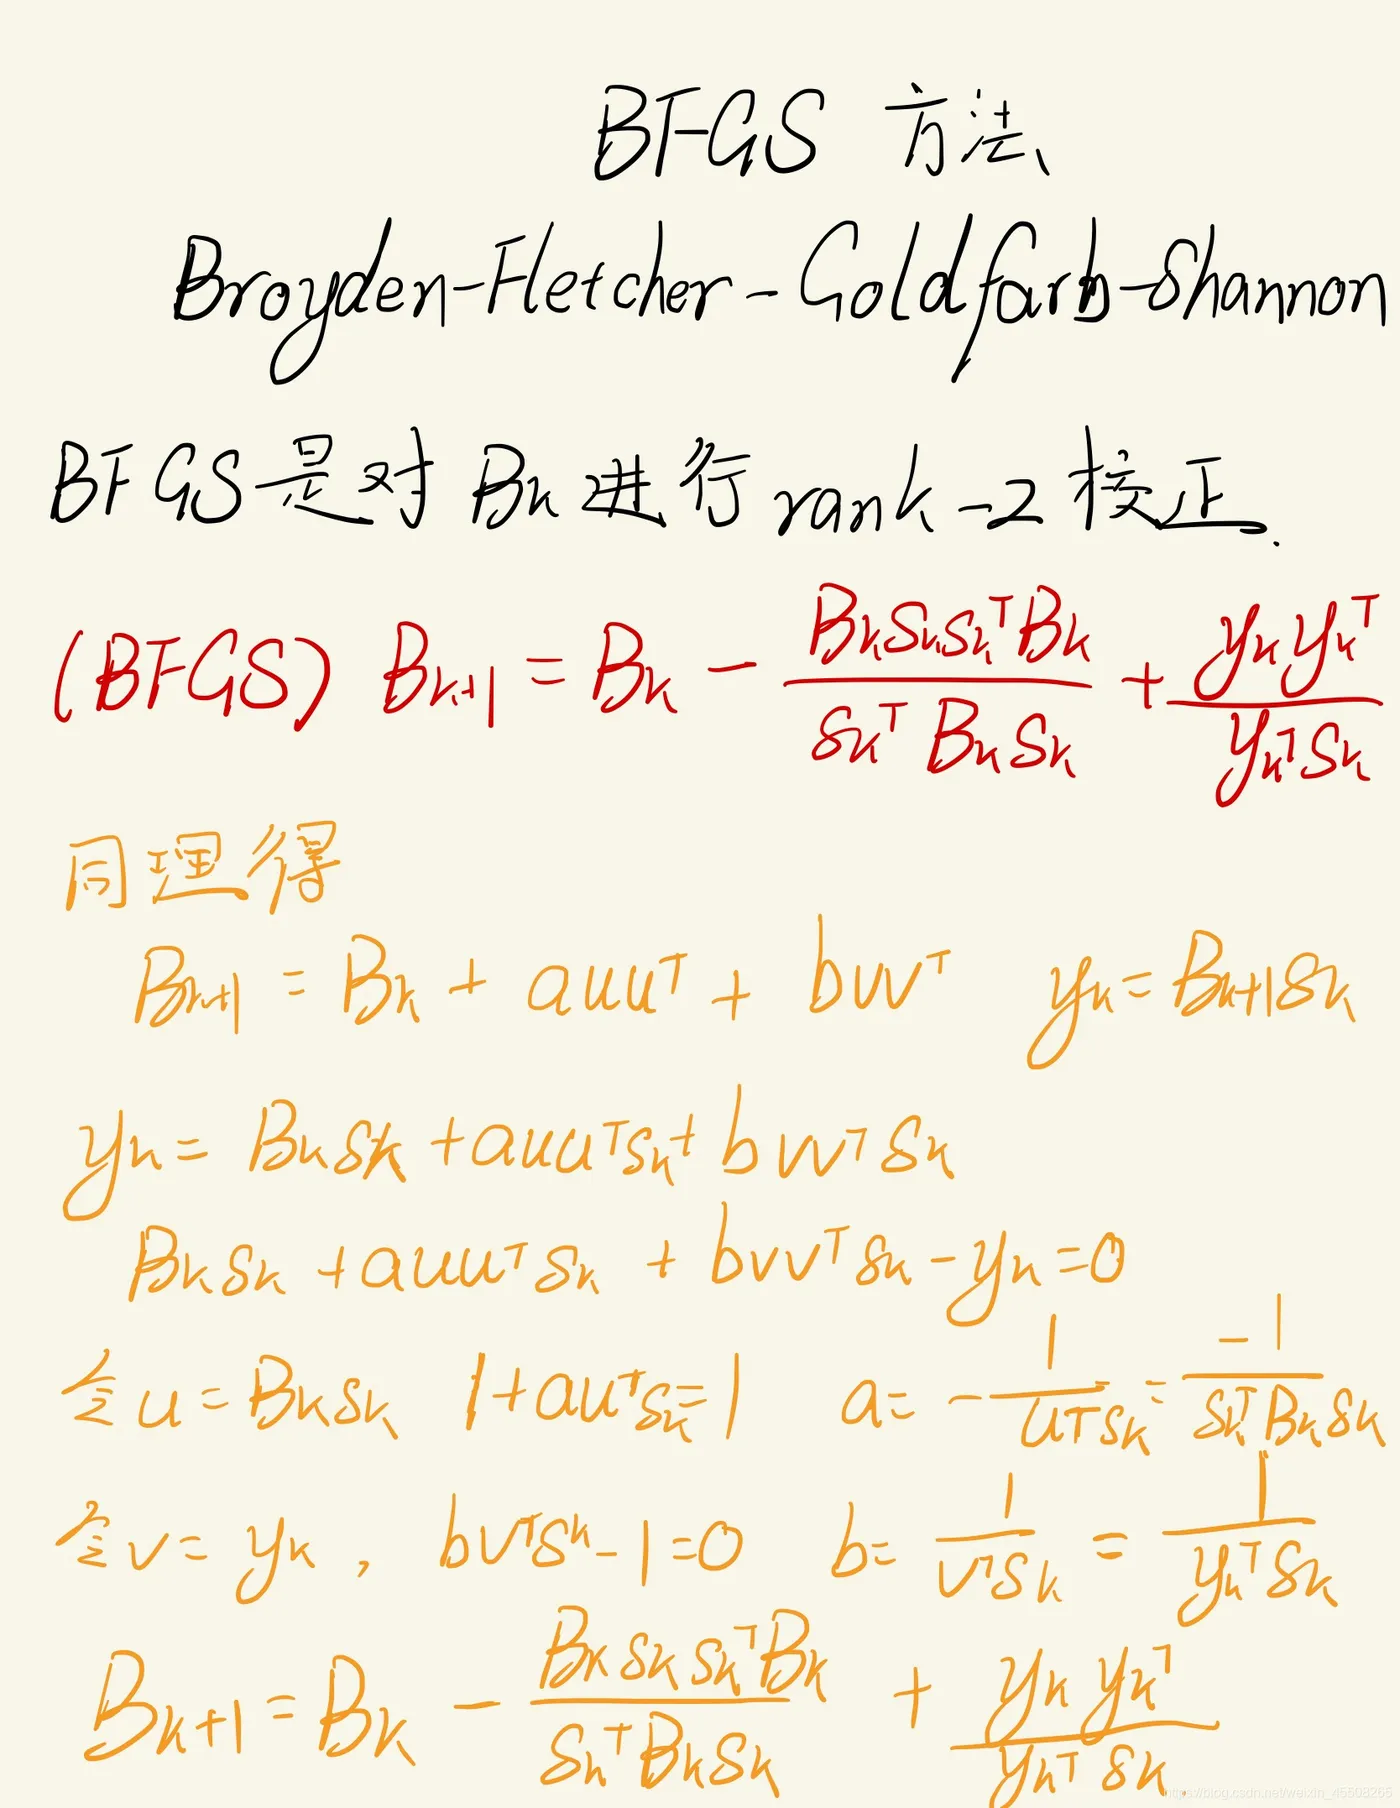 BFGS 方法
Broyden-Fletcher-Goldfarb-Shannon
BFGS是对 Bk 进行 rank-2 校正.
(BFGS) Bk+1 = Bk - (Bk sk sk^T Bk)/(sk^T Bk sk) + (yk yk^T)/(yk^T sk)
同理得
Bk+1 = Bk + auu^T + bvv^T yk = Bk+1 sk
yk = Bk sk + auu^T sk + bvv^T sk
Bk sk + auu^T sk + bvv^T sk - yk = 0
令u = Bk sk 1+au^T sk = 1 a = - 1/(u^T sk) = -1/(sk^T Bk sk)
令v = yk , bv^T sk - 1 = 0 b = 1/(v^T sk) = 1/(yk^T sk)
Bk+1 = Bk - (Bk sk sk^T Bk)/(sk^T Bk sk) + (yk yk^T)/(yk^T sk)